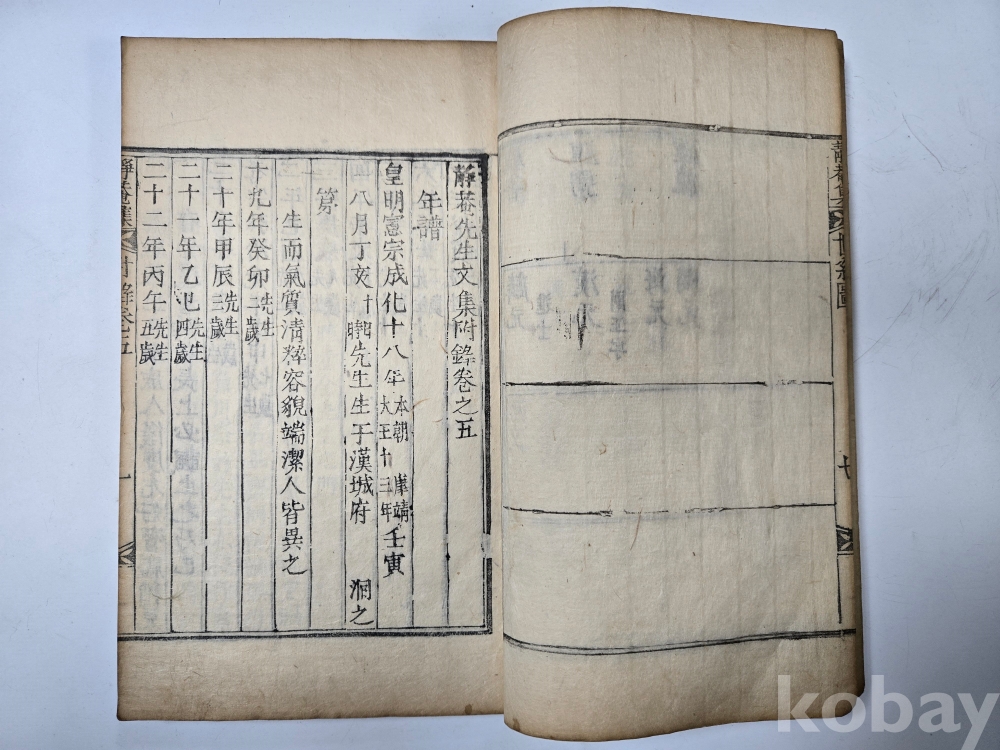 靜菴先生文集附錄卷之五
年譜
皇明憲宗成化十八年本朝康靖大王十三年壬寅
八月丁亥先生生于漢城府 洞之
第
生而氣質清粹容貌端潔人皆異之
十九年癸卯先生二歲
二十年甲辰先生三歲
二十一年乙巳先生四歲
二十二年丙午先生五歲
靜菴集 附錄卷五 一
世系圖
七
kobay